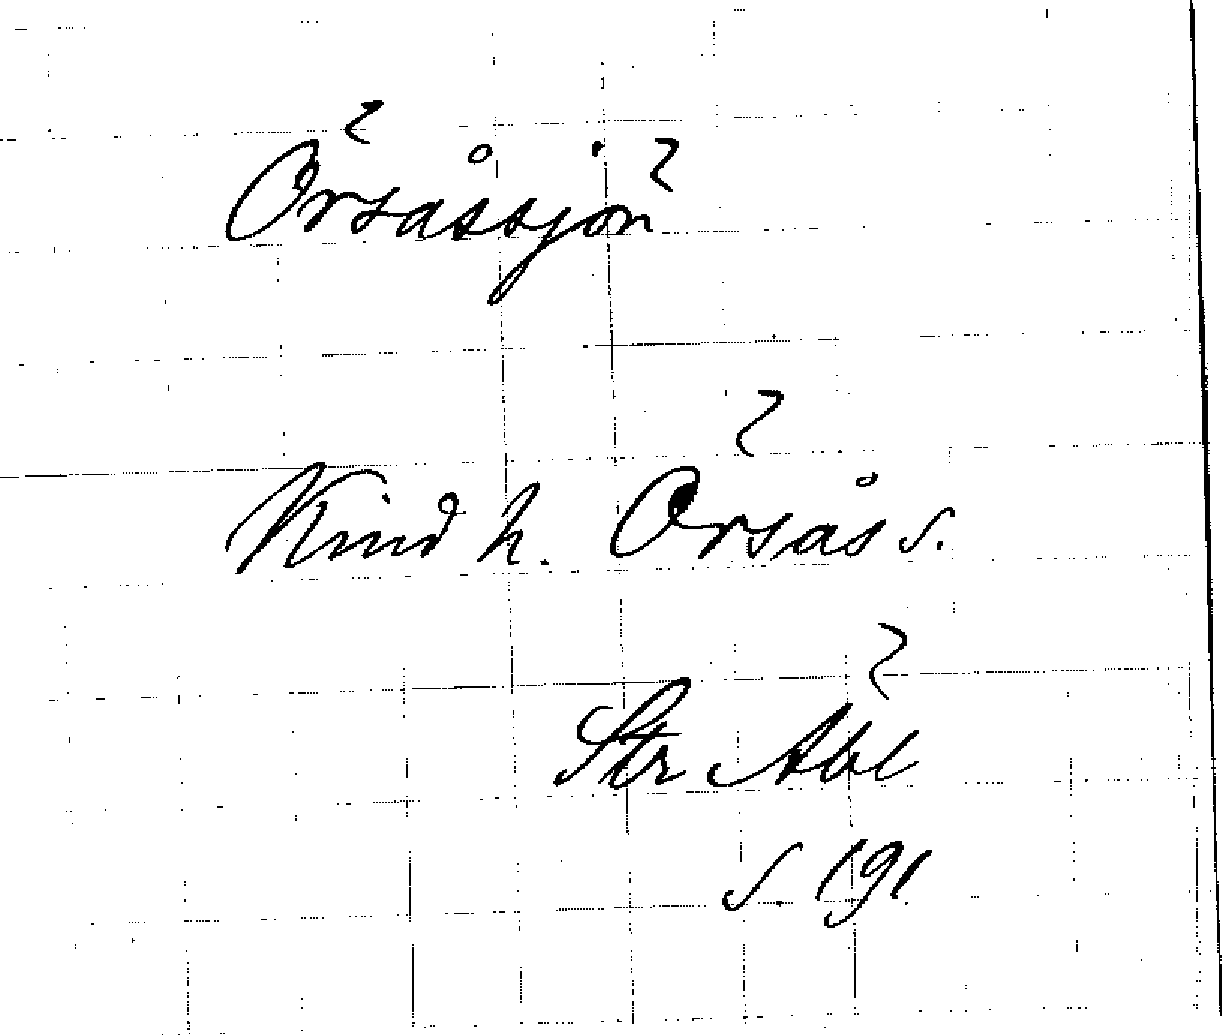 Örsåssjön
Kind h. Örsås s.
Str Äbl
s. 191